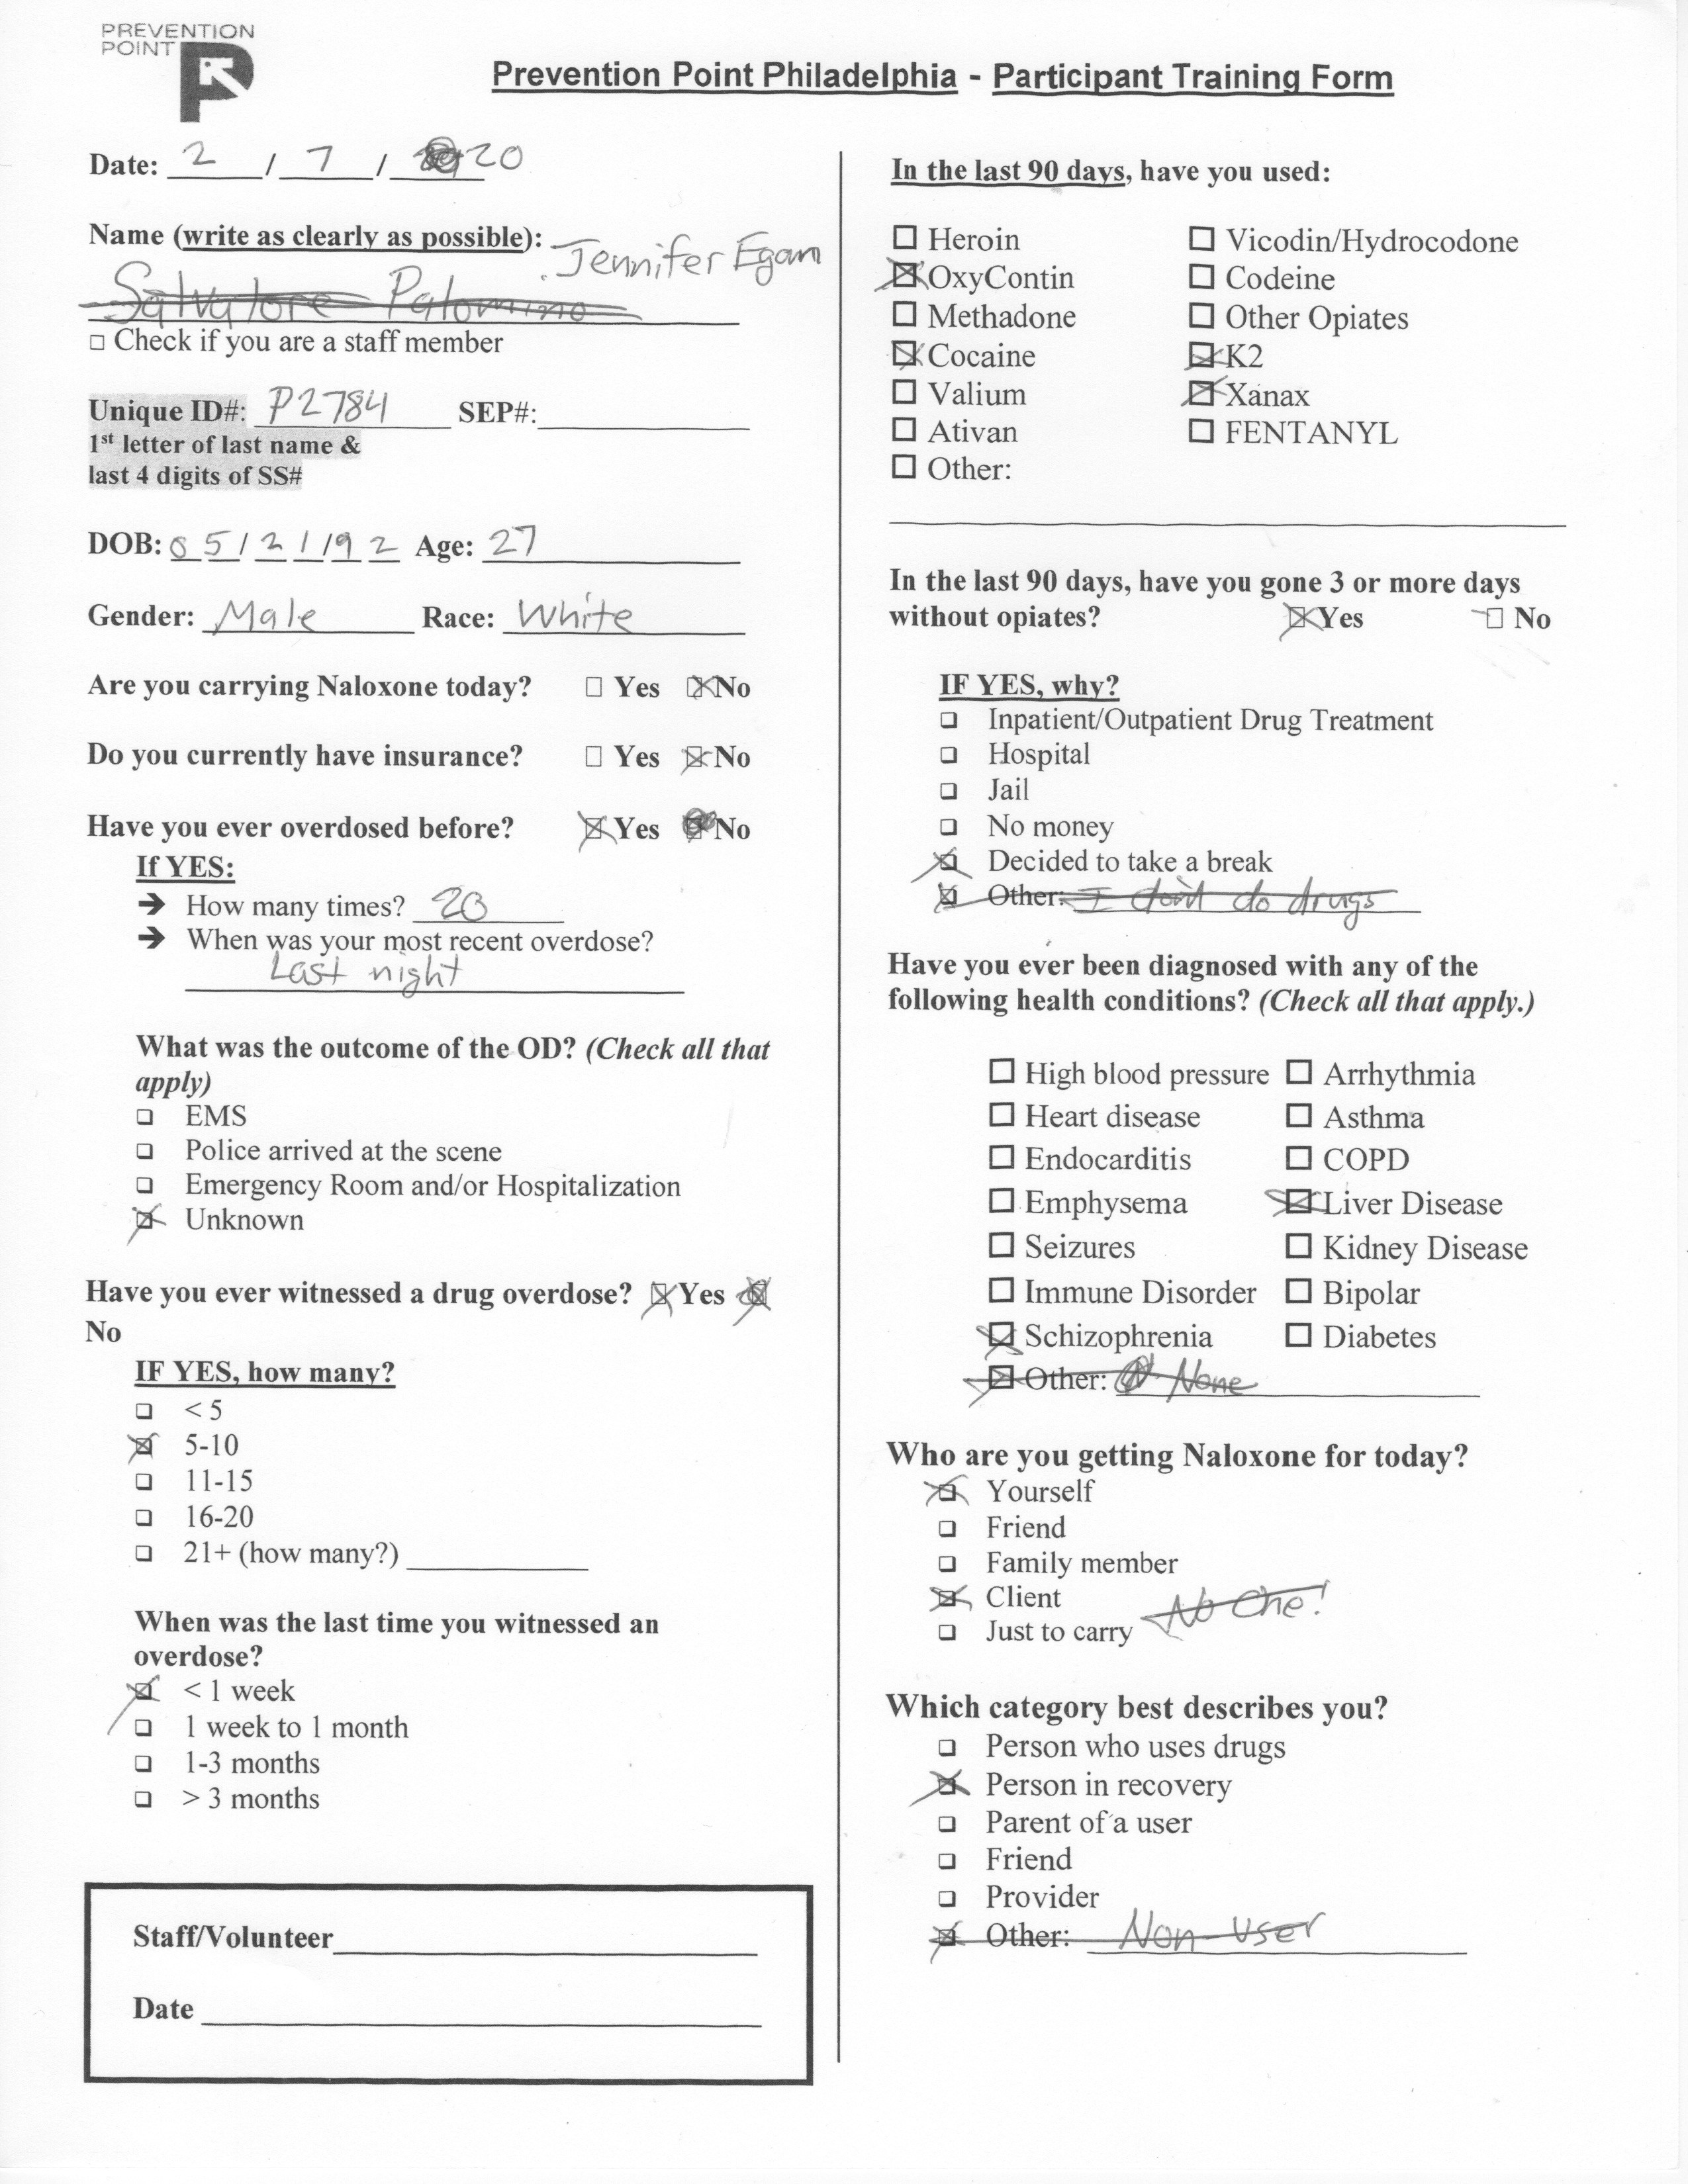 PREVENTION
POINT
Prevention Point Philadelphia - Participant Training Form
Date: 2 / 7 / 20
Name (write as clearly as possible): Jennifer Egan
Salvatore Palomino
□ Check if you are a staff member
Unique ID#: P2784 SEP#:
1st letter of last name &
last 4 digits of SS#
DOB: 05/21/92 Age: 27
Gender: Male Race: White
Are you carrying Naloxone today? □ Yes ☒ No
Do you currently have insurance? □ Yes ☒ No
Have you ever overdosed before? ☒ Yes ☒ No
If YES:
➔ How many times?
➔ When was your most recent overdose?
Last night
What was the outcome of the OD? (Check all that
apply)
□ EMS
□ Police arrived at the scene
□ Emergency Room and/or Hospitalization
☒ Unknown
Have you ever witnessed a drug overdose? ☒ Yes ☒
No
IF YES, how many?
□ < 5
☒ 5-10
□ 11-15
□ 16-20
□ 21+ (how many?)
When was the last time you witnessed an
overdose?
☒ < 1 week
□ 1 week to 1 month
□ 1-3 months
□ > 3 months
Staff/Volunteer
Date
In the last 90 days, have you used:
□ Heroin □ Vicodin/Hydrocodone
☒ OxyContin □ Codeine
□ Methadone □ Other Opiates
☒ Cocaine ☒ K2
□ Valium ☒ Xanax
□ Ativan □ FENTANYL
□ Other:
In the last 90 days, have you gone 3 or more days
without opiates? ☒ Yes □ No
IF YES, why?
□ Inpatient/Outpatient Drug Treatment
□ Hospital
□ Jail
□ No money
☒ Decided to take a break
☒ Other: I don't do drugs
Have you ever been diagnosed with any of the
following health conditions? (Check all that apply.)
□ High blood pressure □ Arrhythmia
□ Heart disease □ Asthma
□ Endocarditis □ COPD
□ Emphysema ☒ Liver Disease
□ Seizures □ Kidney Disease
□ Immune Disorder □ Bipolar
☒ Schizophrenia □ Diabetes
☒ Other: None
Who are you getting Naloxone for today?
☒ Yourself
□ Friend
□ Family member
☒ Client
No One!
□ Just to carry
Which category best describes you?
□ Person who uses drugs
☒ Person in recovery
□ Parent of a user
□ Friend
□ Provider
☒ Other: Non-user